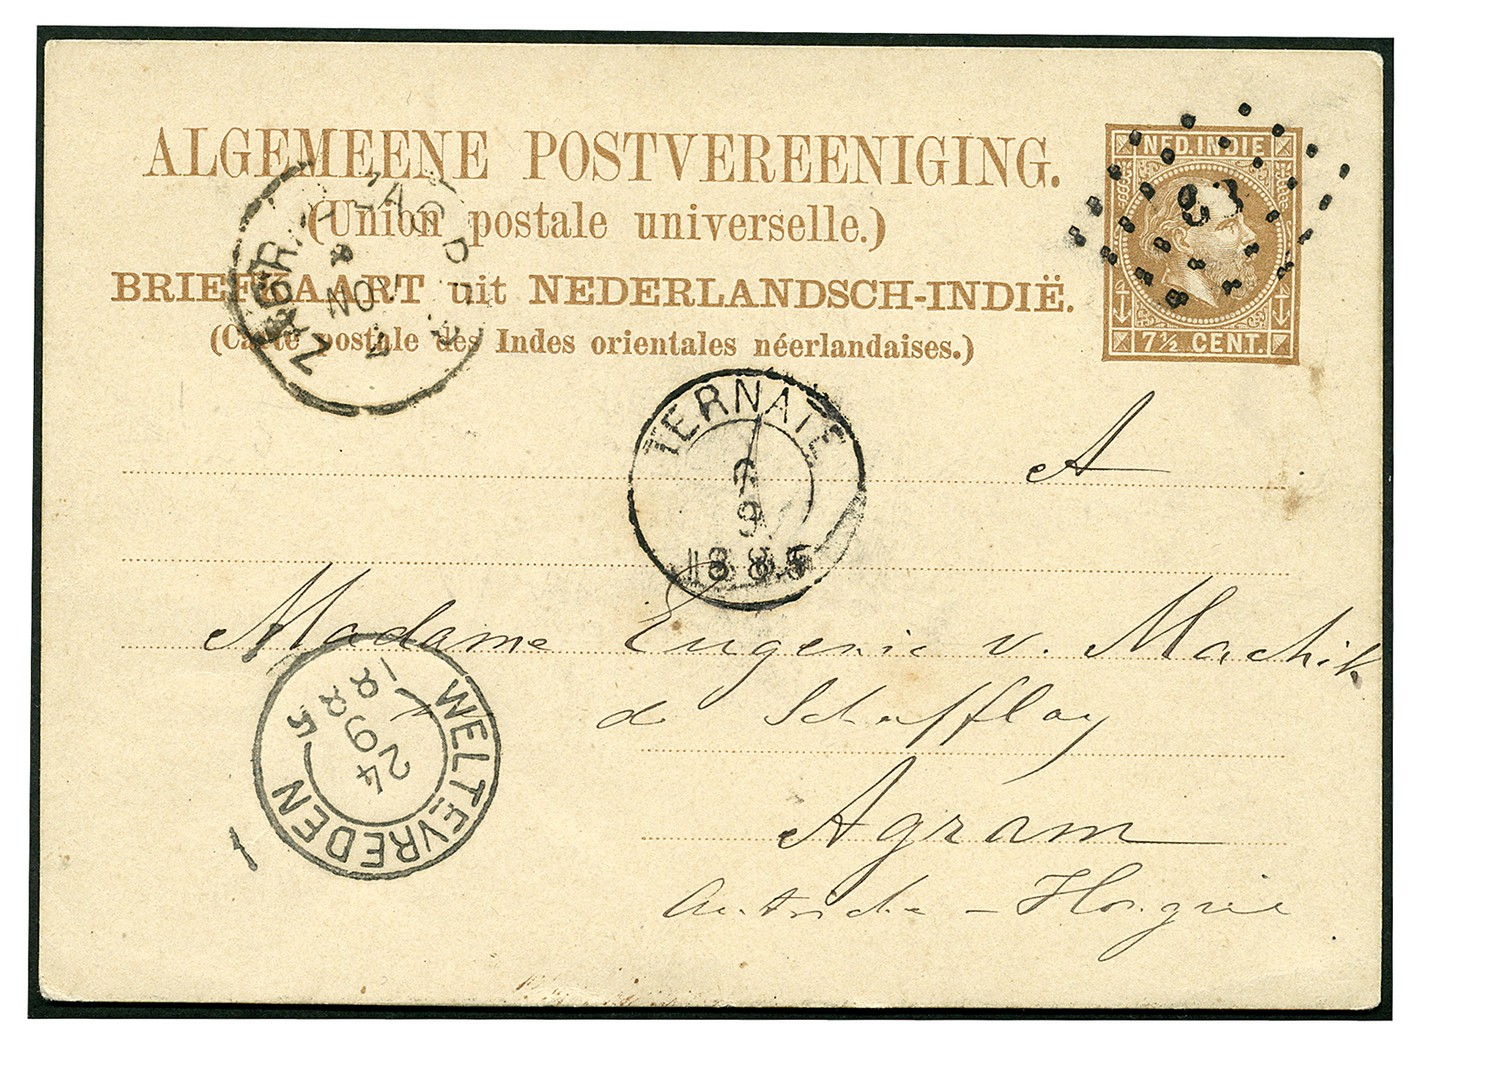 ALGEMEENE POSTVEREENIGING.
(Union postale universelle.)
BRIEFKAART uit NEDERLANDSCH-INDIË.
(Carte postale des Indes orientales néerlandaises.)
NED. INDIE
83
7½ CENT.
TERNATE
9
1885
A
Madame Eugenie v. Machik
de Schafflay
Agram
Autriche - Hongrie
WELTEVREDEN
24
9